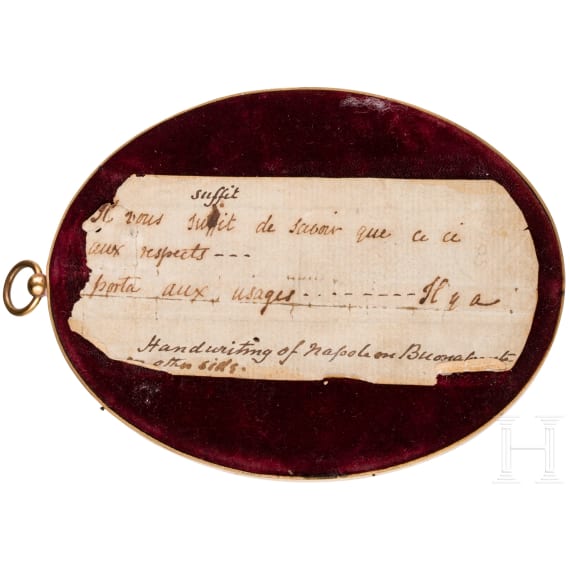 suffit
Il vous suffit de savoir que ce ci
aux respects ---
porta aux usages --------- Il y a
Handwriting of Napoleon Buonaparte
on other side.
H